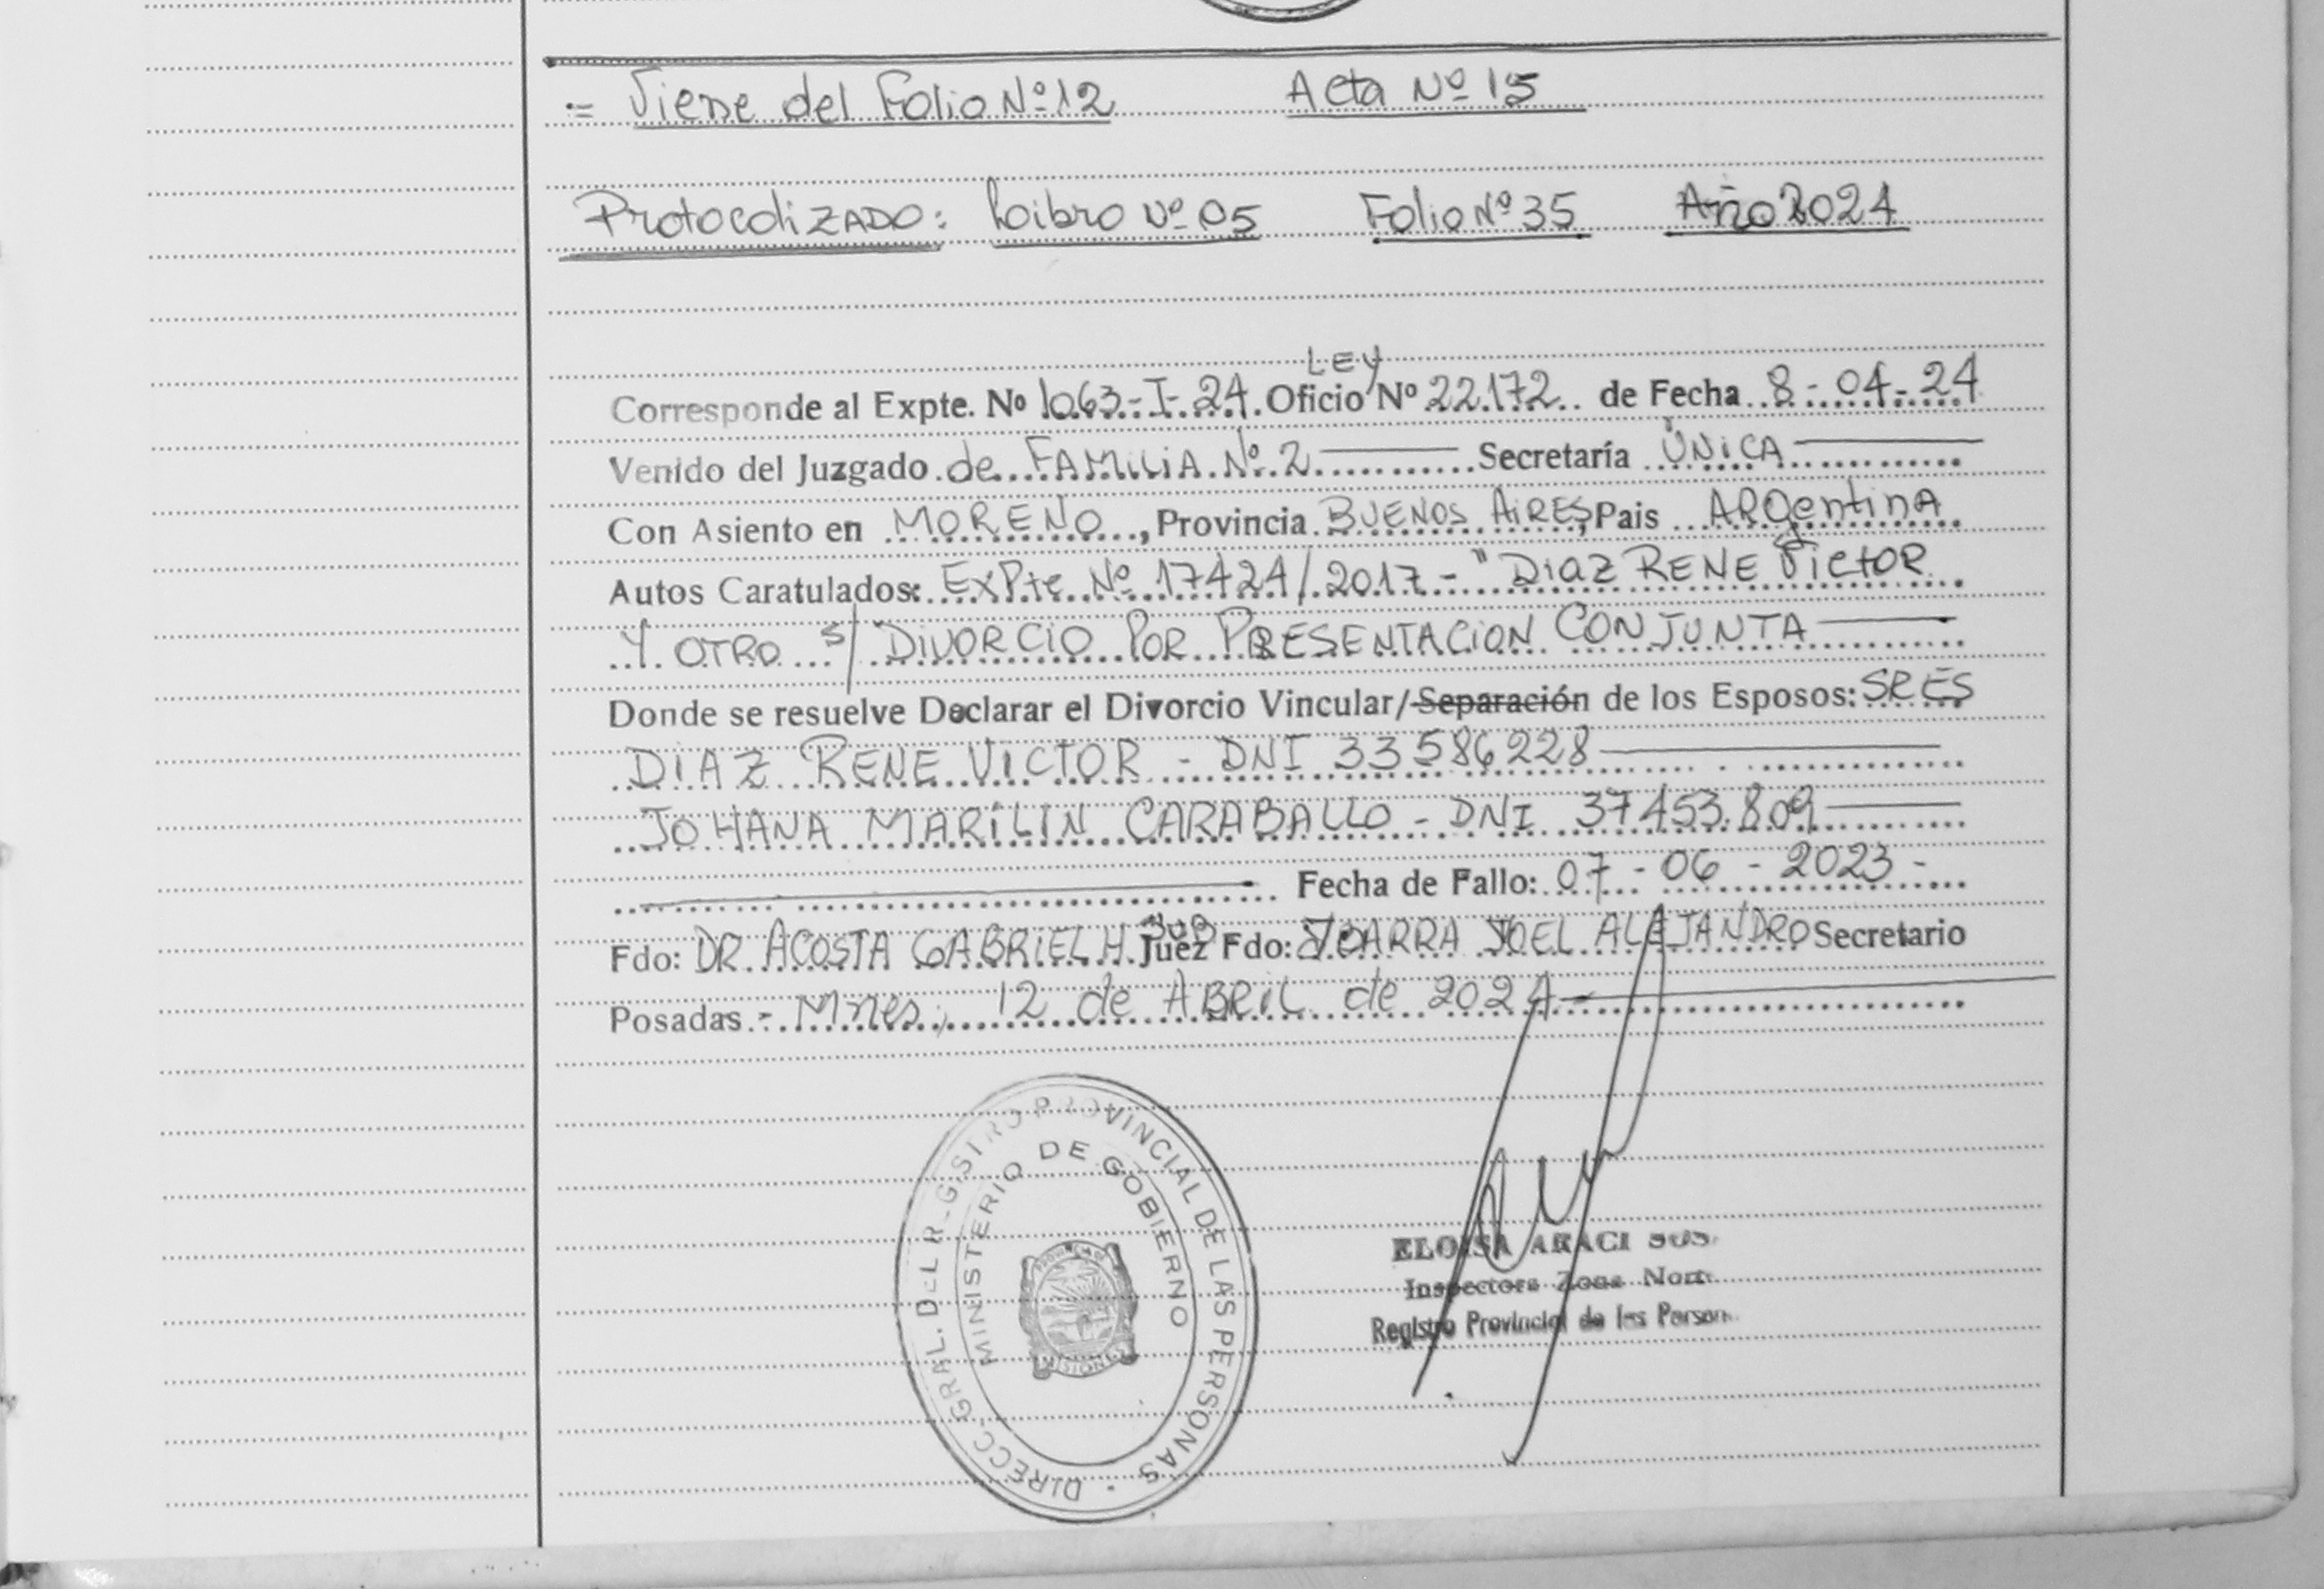 = Viene del Folio Nº 12 Acta Nº 15
Protocolizado: Libro Nº 05 Folio Nº 35 Año 2024
LEY
Corresponde al Expte. Nº 1063-I-24. Oficio Nº 22.172 de Fecha 8-04-24
Venido del Juzgado de FAMILIA Nº 2 Secretaría ÚNICA
Con Asiento en MORENO, Provincia BUENOS AIRES, Pais ARgentinA
Autos Caratulados: ExPte Nº 17424/2017- "DIAZ RENE VictOR
Y OTRO S/ DIVORCIO POR PRESENTACION CONJUNTA
Donde se resuelve Declarar el Divorcio Vincular/Separación de los Esposos: SRES
DIAZ RENE VICTOR - DNI 33586228
JOHANA MARILIN CARABALLO - DNI 37453.809
Fecha de Fallo: 07-06-2023-
Fdo: DR. ACOSTA GABRIEL H. Juez Fdo: YBARRA JOEL ALEJANDRO Secretario
Posadas.- Mnes, 12 de ABRIL de 2024-
DIRECC. GRAL. DEL REGISTRO PROVINCIAL DE LAS PERSONAS
MINISTERIO DE GOBIERNO
MISIONES
ELOISA ARACI
Inspectora Zona Norte
Registro Provincial de las Person